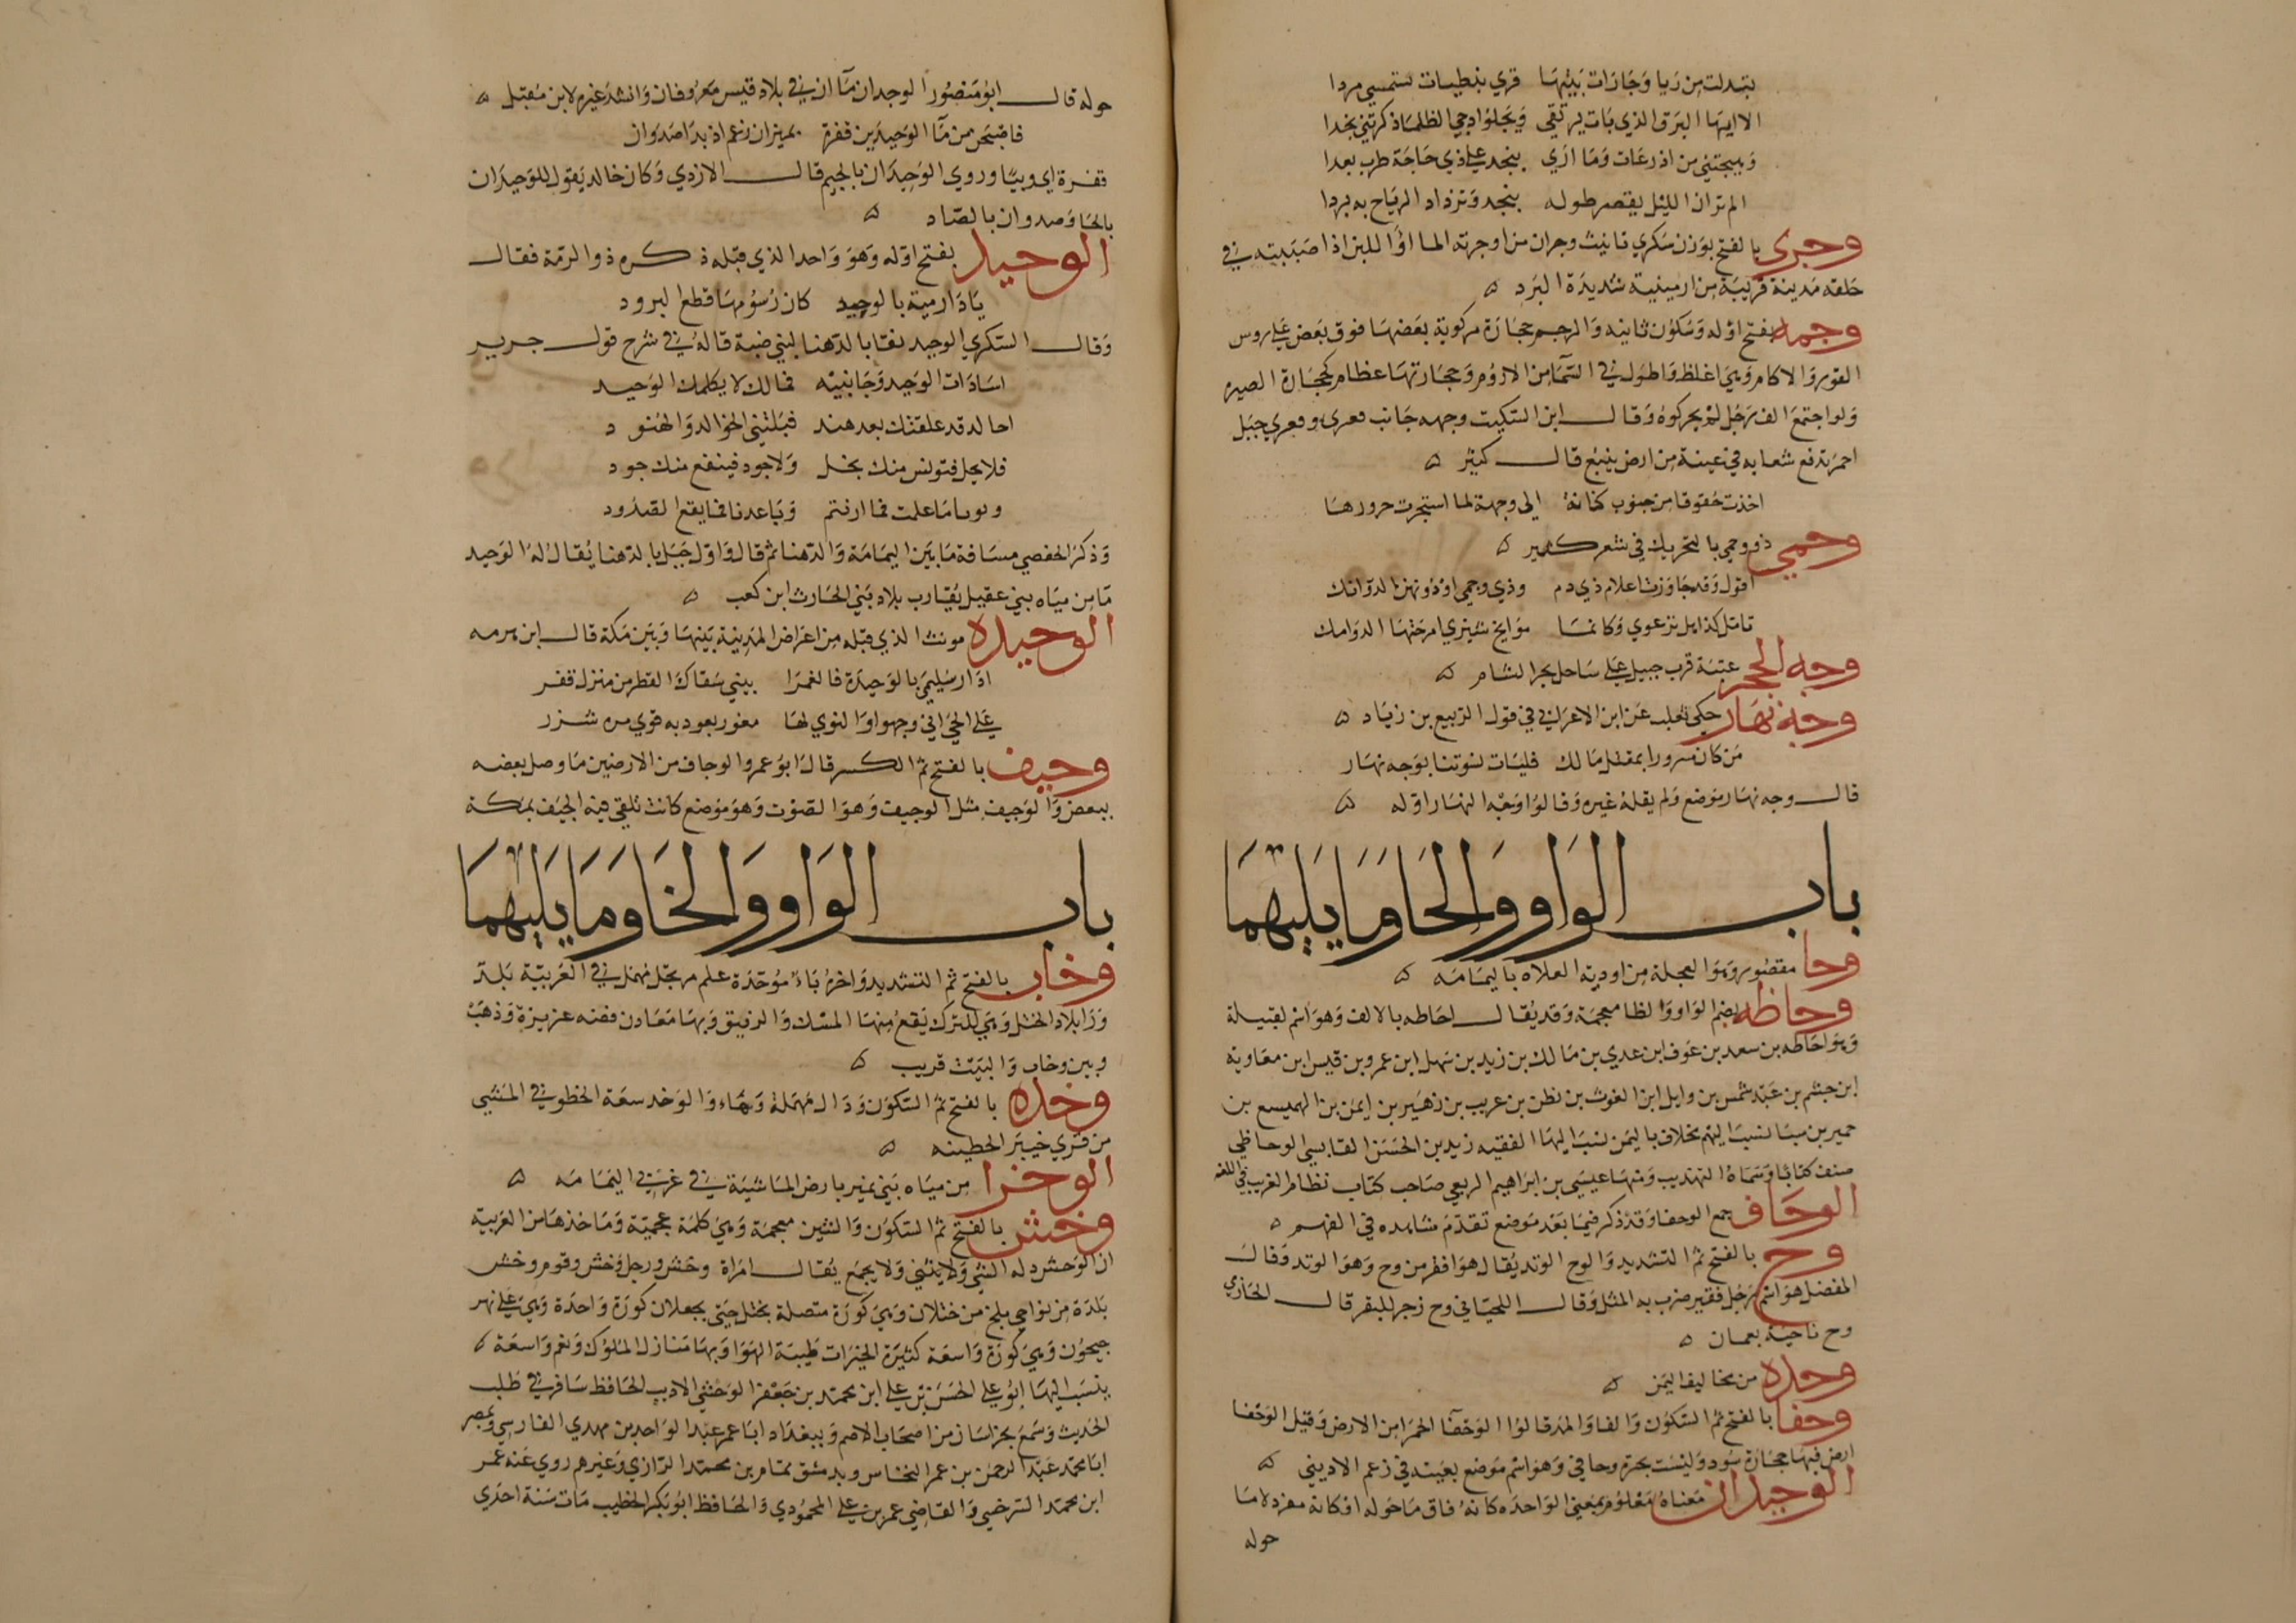 بتبدلت من ريا وجارات بيتها قري نبطيات تسمى مردا
الا ايها البرق الذي بات يرتقي ويجلو ادجى الظلماذكرتني نجدا
وهيجتني من اذرعات وما ارى بنجد على ذي حاجة طرب بعدا
الم تران الليل يقصر طوله بنجد وتزداد الرياح به بردا
وجرى بالفتح بوزن سكرى تانيث وجران من اوجرته الما اؤا للبن اذا صببته في
حلقه مدينة قريبة من ارمينية شديدة البرد ه
وجمه بفتح اوله وسكون ثانيه والوجم حجارة مركوبة بعضها فوق بعض على روس
القور والاكام وهي اغلظ واطول في السما من الاروم وحجارتها عظام كحجارة الصيره
ولو اجتمع الف رجل لم يحركوه وقال ابن السكيت وجهه جانب فعرى وفعرى جبل
احمر تدفع شعابه في عينة من ارض ينبع قال كثير ه
اخذت خفوقا من جنوب كتانة الى وجهة لما استجرت حرورها
وجمي ذو وجمي بالتحريك في شعر كثير ه
اقول وقد جاوزت اعلام ذي دم وذي وجمى او دونهن الدوانك
تامل كذا هل ترعوي وكانما موايج شيزى امرحتها الدوامك
وجه الحجر عتبة قرب جبيل على ساحل بحر الشام ه
وجه نهار حكى ثعلب عن ابن الاعرابي في قول الربيع بن زياد ه
من كان مسرورا بمقتل مالك فليات نسوتنا بوجه نهار
قال وجه نهار موضع ولم يقله غيره وقالوا وجه النهار اوله ه
باب الواو والحا وما يليهما
وحا مقصور وهوا العجلة من اودية العلاه باليمامه ه
وحاظه بضم الواو والظا معجمة وقد يقال احاظه بالالف وهو اسم لقبيلة
وهو احاظه بن سعد بن عوف ابن عدي بن مالك بن زيد بن سهل ابن عمرو بن قيس ابن معاوية
ابن جشم بن عبد شمس بن وايل ابن الغوث بن نطن بن عريب بن زهير بن ايمن بن الهميسع بن
حمير بن سبا نسب اليهم مخلاف باليمن نسب اليها الفقيه زيد بن الحسن القايسي الوحاظي
صنف كتابا وسماه التهذيب ومنها عيسى بن ابراهيم الربعي صاحب كتاب نظام الغريب في اللغه
الوحاف جمع الوحفا وقد ذكر فيما بعد موضع تقدم شاهده في القهر ه
وح بالفتح ثم التشديد والوح الوتد يقال هو افقر من وح وهو الوتد وقال
المفضل هو اسم رجل فقير ضرب به المثل وقال اللحياني وح زجر للبقر قال الحازمي
وح ناحية بعمان ه
وحده من مخاليف اليمن ه
وحفا بالفتح ثم السكون والفا والمد قالوا الوحفا الحمرا من الارض وقيل الوحفا
ارض فيها حجارة سود وليست بحرة وحافي وهو اسم موضع بعينه في زعم الاديبي ه
الوحيدان معناه معلوم بمعنى الواحده كانه فاق ما حوله او كانه مفرد لا ما
حوله
حوله قال ابو منصور الوحدان ما ان في بلاد قيس معروفان وانشد غيره لابن مقبل ه
فاصبحن من ما الوحيدين نقرة بميزان رعم اذ بدا ضدوان
نقرة اي وبيا وروي الوجيدان بالجيم قال الازدي وكان خالد يقول الوحيدان
بالحا وصدوان بالصاد ه
الوحيد بفتح اوله وهو واحد الذي قبله ذكره ذو الرمة فقال
يا دار مية بالوحيد كان رسومها قطع البرود
وقال السكري الوحيد نقا بالدهنا لبني ضبة قاله في شرح قول جرير
اساءات الوحيد وجانبيه فمالك لا يكلمك الوحيد
احالد قد علقتك بعد هند فبلتني الخوالد والهنود
فلا بخل فتونس منك بخل ولا جود فينفع منك جود
وبو ما علمت فما ارفتم وباعدنا فما يقع الصدود
وذكر الحفصي مسافة ما بين اليمامة والدهنا ثم قال واول جبل بالدهنا يقال له الوحيد
ما من مياه بني عقيل يقارب بلاد بني الحارث ابن كعب ه
الوحيده مونث الذي قبله من اعراض المدينة بينها وبين مكة قال ابن هرمه
ادار سليمى بالوحيدة فالغمرا بيني سقاك القطر من منزل قفر
على الحي اني وجهوا والنوي لها مغور بعود به قوي مره شزر
وحيف بالفتح ثم الكسر قال ابو عمرو الوحاف من الارضين ما وصل بعضه
ببعض والوحيف مثل الوجيف وهو الصوت وهو موضع كانت تلقى فيه الجيف بمكة
باب الواو والخا وما يليهما
وخاب بالفتح ثم التشديد واخره باء موحدة علم مرتجل مهمل في العربية بلد
ورا بلاد الختل وهي للترك يقع منها المسك والرقيق وبها معادن فضه عزيزة وذهب
وبين وخاب والتبت قريب ه
وخده بالفتح ثم السكون ودال مهملة وهاء والوخد سعة الخطو في المشي
من قرى خيبر الحصينه ه
الوخزا من مياه بني نمير بارض الماشية في غربي اليمامه ه
وخش بالفتح ثم السكون والشين معجمة وهي كلمة عجمية وماخذها من العربية
ان الوخش رذاله الشي ولا يثنى ولا يجمع يقال امراة وخش ورجل وخش وقوم وخش
بلدة من نواحي بلخ من ختلان وهي كورة متصلة بختل حتى يجعلان كورة واحدة وهي على نهر
جيحون وهي كورة واسعة كثيرة الخيرات طيبة الهوا وبها منازل الملوك ونعم واسعة ه
ينسب اليها ابو علي الحسن بن علي ابن محمد بن جعفر الوخشي الاديب الحافظ سافر في طلب
الحديث وسمع بخراسان من اصحاب الاصم وببغداد ابا عمر عبد الواحد بن مهدي الفارسي وبمصر
ابا محمد عبد الرحمن بن عمر النحاس وبدمشق تمام بن محمد الرازي وغيرهم روى عنه عمر
ابن محمد السرخسي والقاضي عمر بن علي المحمودي والحافظ ابو بكر الخطيب مات سنة احدى